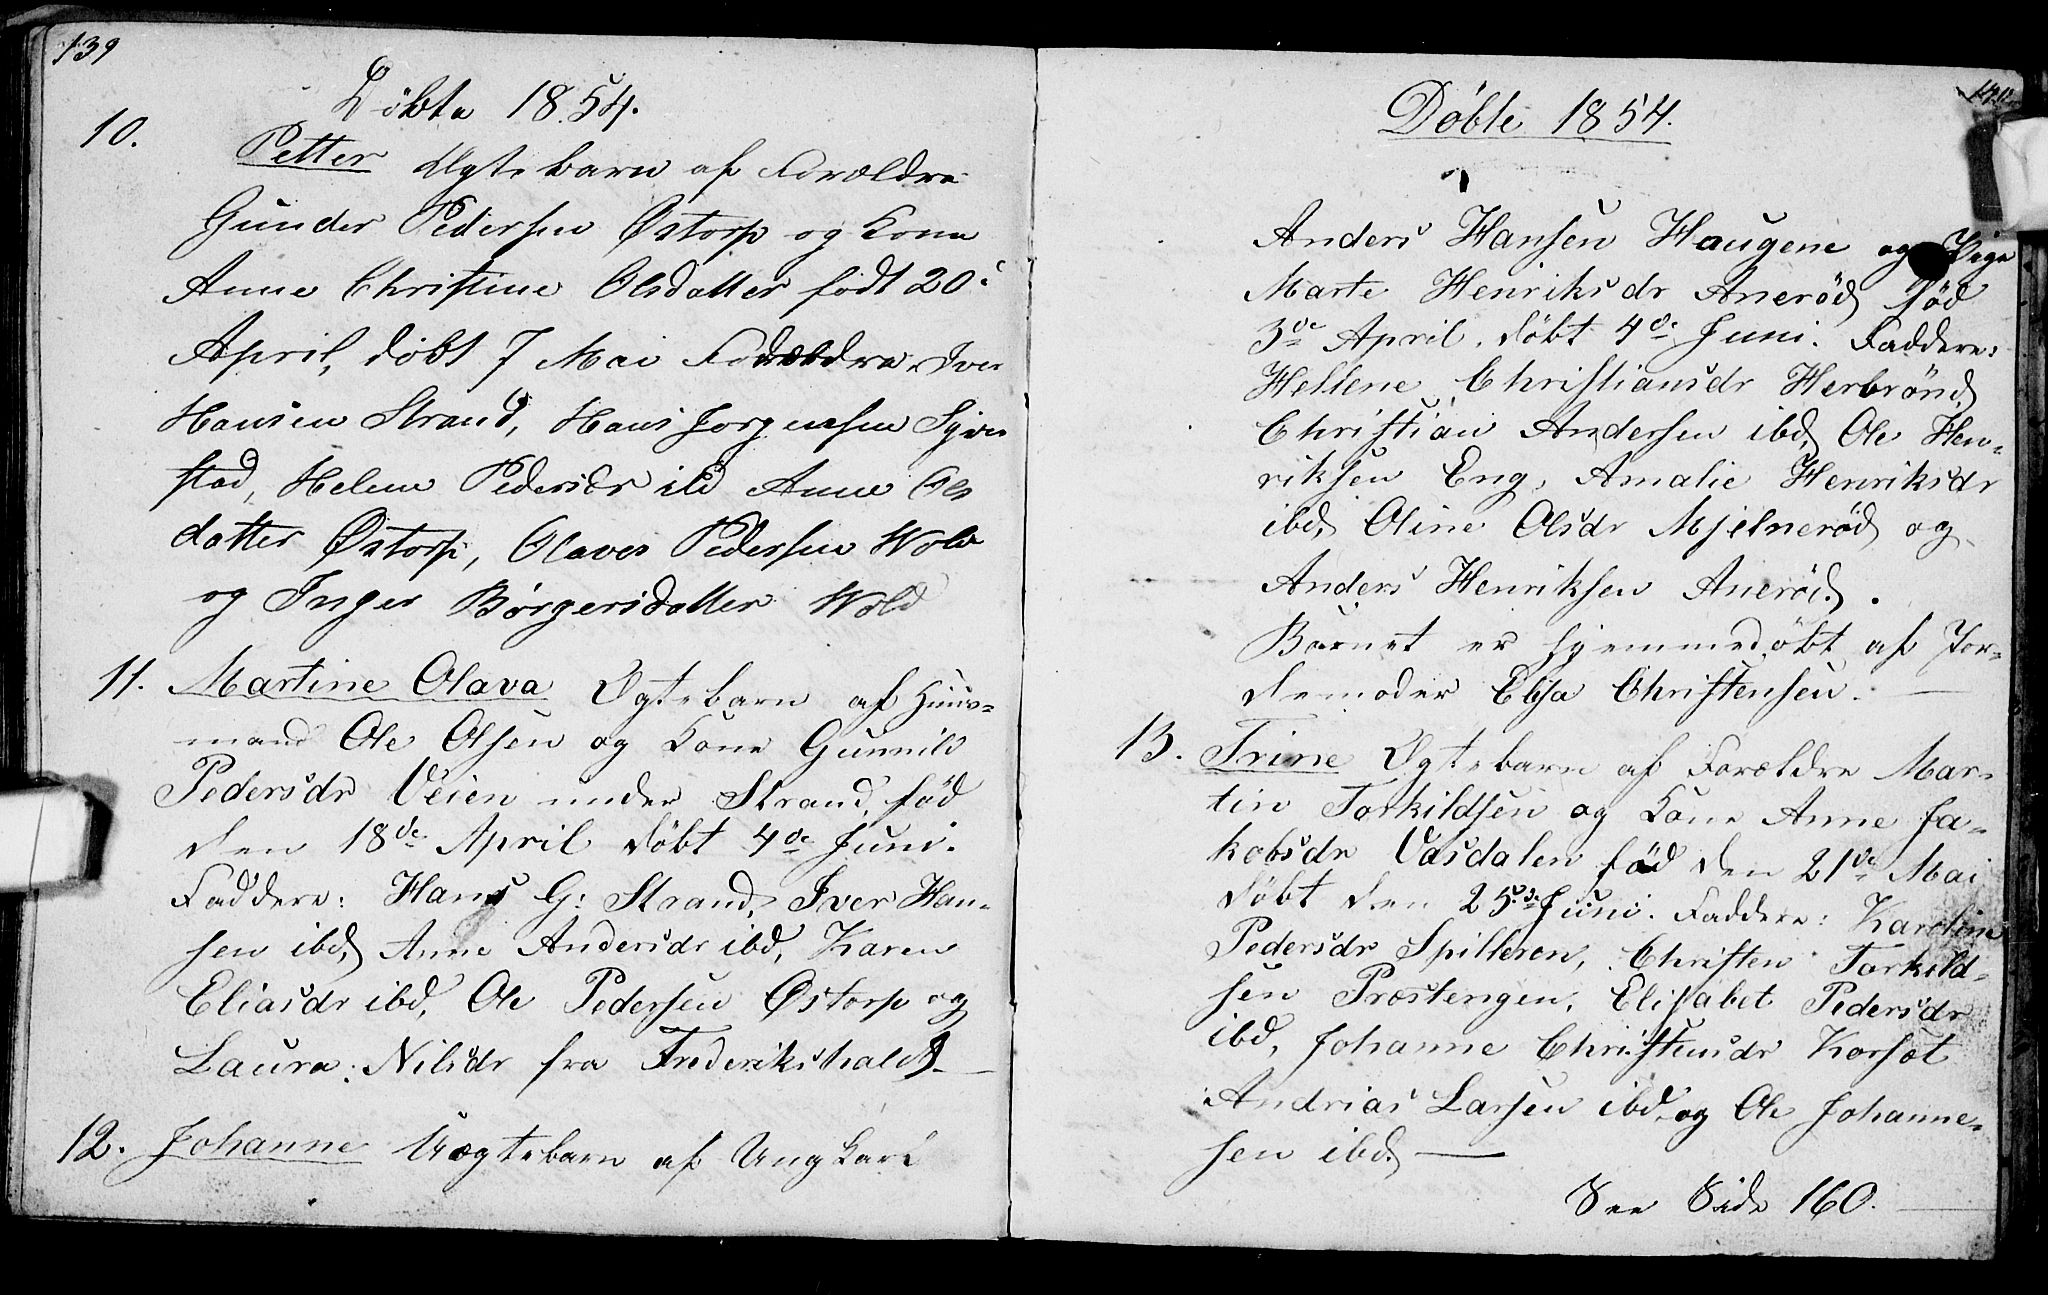 139
Døbte 1854.
10.
Petter Ægtebarn af Forældre
Gunder Pedersen Østorp og Kone
Anne Christine Olsdatter født 20de
April, døbt 7 Mai Foræeldre. Iver
Hansen Strand, Hans Jørgensen Syver
stad, Helene Pedersdr ibd Anne Ols
datter Østorp, Olaves Pedersen Wold
og Inger Børgersdatter Wold
11. Martine Olava Ægtebarn af Huus-
mand Ole Olsen og Kone Gunnild
Pedersdr Veien under Strand, fød
den 18de April døbt 4de Juni.
Faddere: Hans G: Strand, Iver Han-
sen ibd, Anne Andersdr ibd, Karen
Eliasdr ibd, Ole Pedersen Østorp og
Laura Nilsdr fra Frederikshald.
12. Johanne Uægtebarn af Ungkarl
140
Døbte 1854.
Anders Hansen Haugene og Pige
Marte Henriksdr Anerød fød
3de April. døbt 4de Juni. Faddere:
Hellene Christiansdr Herbrønd,
Christian Andersen ibd, Ole Hen-
riksen Eng, Amalie Henriksdr
ibd, Oline Olsdr Mjelnerød og
Anders Henriksen Anerød.
Barnet er hjemmedøbt af Jor-
demoder Elsa Christensen.
13. Trine Ægtebarn af Forældre Mar-
tin Torkildsen og Kone Anne Ja-
kobsdr Vasdalen fød den 21de Mai
døbt den 25de Juni. Faddere: Karoline
Pedersdr Spilleren, Christen Torkild-
sen Præstengen, Elisabet Pedersdr
ibd, Johanne Christensdr Korsæt
Andrias Larsen ibd. og Ole Johanne-
sen ibd.
See Side 160.